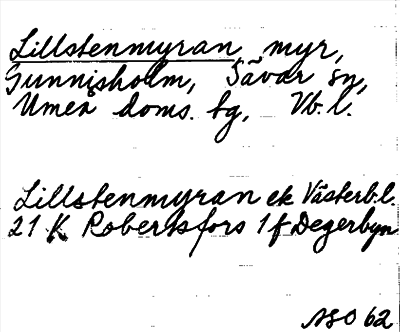 Lillstenmyran myr,
Gunnisholm, Sävar sn,
Umeå doms. bg, Vb. l.
Lillstenmyran ek Västerb.l.
21 K Robertsfors 1 f Degerbyn
NSO 62